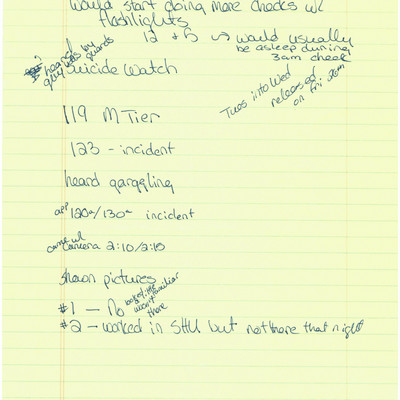 would start doing more checks w/
flashlights
12 + 5 → would usually
be asleep during
3am check
heard
guy was by
guards
Suicide Watch
Tues into Wed
released
on Fri
119 M Tier
123 - incident
heard garggling
app 120a/130a incident
came w/
camera 2:10/2:15
shown pictures
#1 - No
wasn't familiar
there
#2 - worked in SHU but not there that night